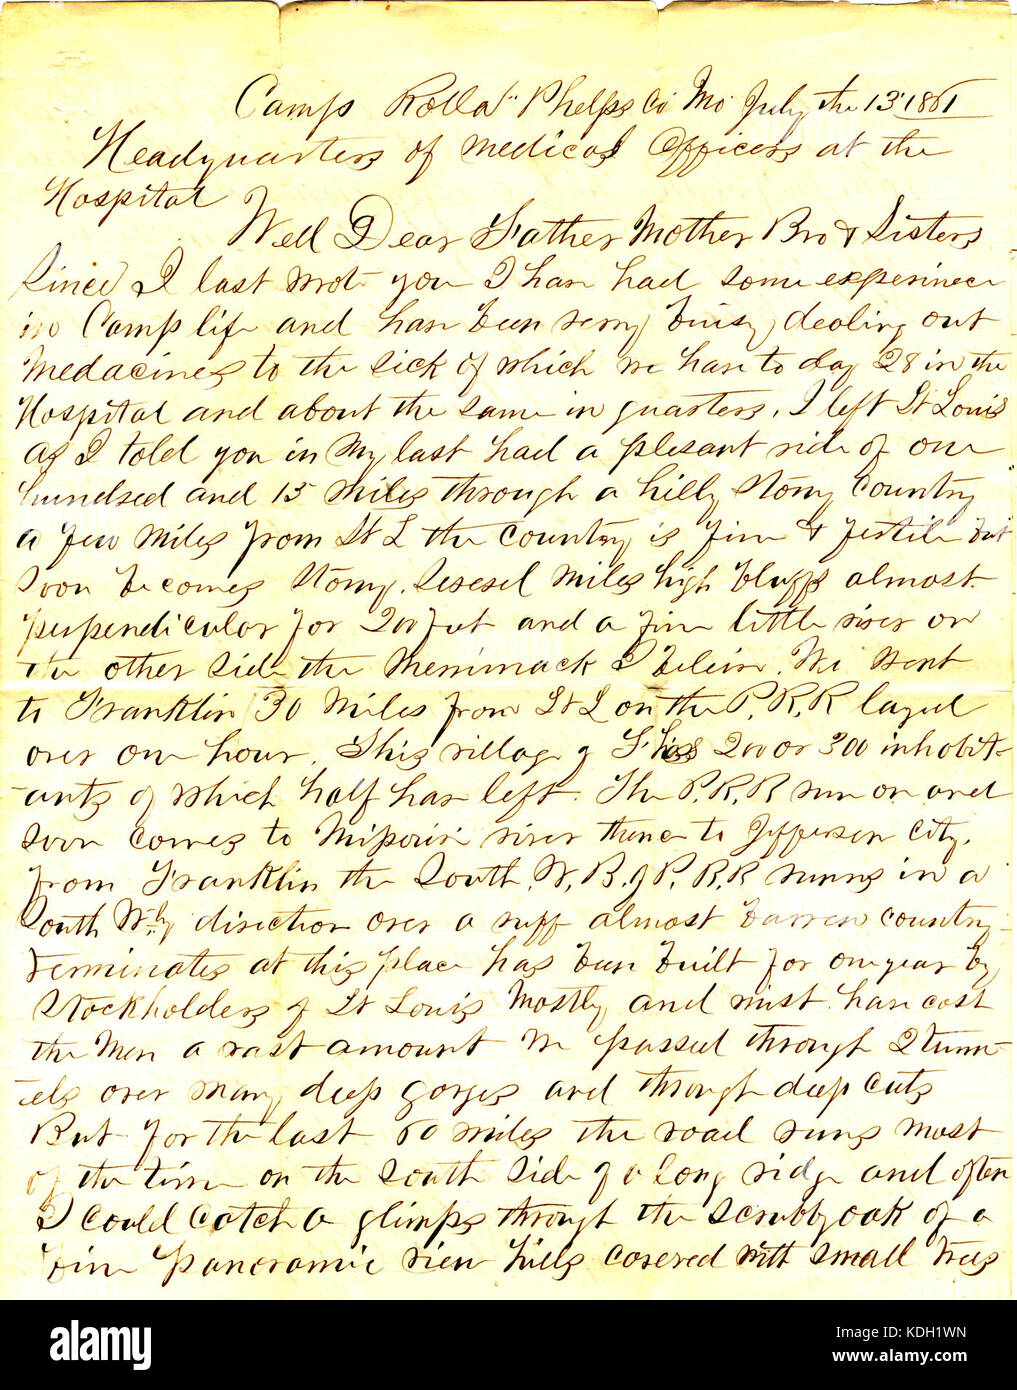 Camp Rolla" Phelps Co Mo July the 13' 1861
Headquarters of Medical Officers at the
Hospital
Well Dear Father Mother Bro & Sisters
Since I last wrote you I have had some experience
in Camp life and have been very buisy dealing out
Medacines to the sick of which we have to day 28 in the
Hospital and about the same in quarters. I left St Louis
as I told you in my last had a plesant ride of one
hundred and 15 miles through a hilly stony country
a few miles from St L the country is fine & fertile but
soon becomes stony. miles high bluffs almost
perpendicular for 200 feet and a fine little river on
the other side the Merrimack I beleive. We went
to Franklin 30 miles from St L on the P. R. R layed
over one hour. This village of F has 200 or 300 inhabit-
ants of which half have left. The P. R. R run on and
soon comes to Missouri river thence to Jefferson City.
from Franklin the South. W. B. of P. R. R runs in a
South Wly direction over a ruff almost barren country
terminates at this place has been built for one year by
Stockholders of St Louis Mostly and must have cost
the Men a vast amount We passed through 2 tunn-
els over many deep gorges and through deep cuts
But for the last 60 miles the road runs most
of the time on the south side of a long ridge and often
I could catch a glimps through the scrubby oak of a
fine panoramic view hills covered with small trees
alamy
Image ID: KDH1WN
www.alamy.com